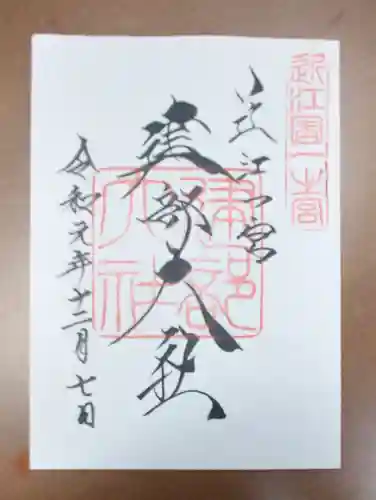 近江國一之宮
近江一宮
建部大社
建部大社
令和元年十二月七日